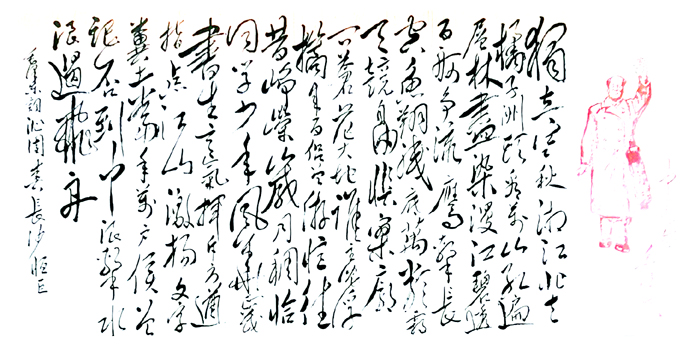 獨立寒秋湘江北去
橘子洲頭看萬山紅遍
層林盡染漫江碧透
百舸爭流鷹擊長
空魚翔淺底萬類霜
天競自由悵寥廓
問蒼茫大地誰主沉浮
攜來百侶曾遊憶往
昔崢嶸歲月稠恰
同學少年風華正茂
書生意氣揮斥方遒
指點江山激揚文字
糞土當年萬戶侯曾
記否到中流擊水
浪遏飛舟
毛澤東詞沁園春長沙